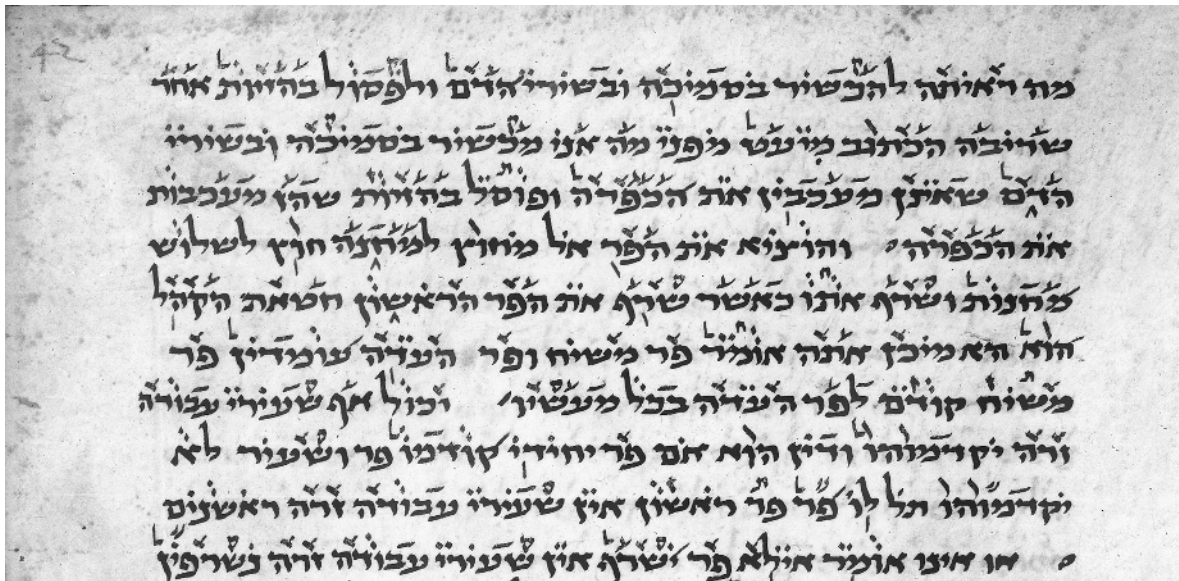 42
מה ראיתה להכשיר בסמיכה ובשירי הדם ולפסול בהזיות אחר
שריבה הכתוב מיעט מפני מה אני מכשיר בסמיכה ובשירי
הדם שאינן מעכבין את הכפרה ופוסל בהזיות שהן מעכבות
את הכפרה והוציא את הפר אל מחוץ למחנה חוץ לשלוש
מחנות ושרף אתו כאשר שרף את הפר הראשון חטאת הקהל
הוא הא מיכן אתה אומר פר משיח ופר העדה עומדין פר
משיח קודם לפר העדה בכל מעשיו יכול אף שעירי עבודה
זרה יקדמוהו ודין הוא אם פר יחידי קודמו פר ושעיר לא
יקדמוהו תל לו פר פר ראשון אין שעירי עבודה זרה ראשנים
או אינו אומר אילא פר ישרף אין שעירי עבודה זרה נשרפין